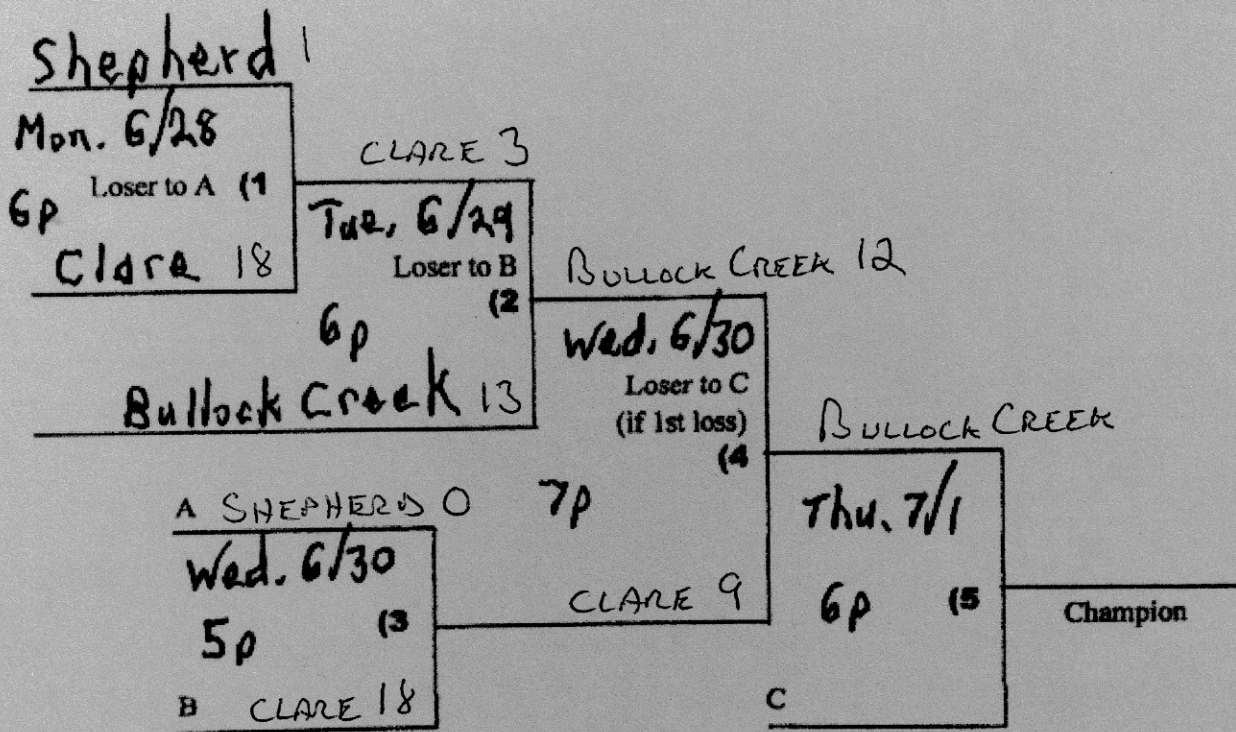 Shepherd 1
Mon. 6/28
Loser to A (1
6p
Clare 18
CLARE 3
Tue. 6/29
Loser to B
(2
6p
Bullock Creek 13
BULLOCK CREEK 12
Wed. 6/30
Loser to C
(if 1st loss)
(4
7p
A SHEPHERD 0
Wed. 6/30
5p (3
B CLARE 18
CLARE 9
BULLOCK CREEK
Thu. 7/1
6p (5
C
Champion